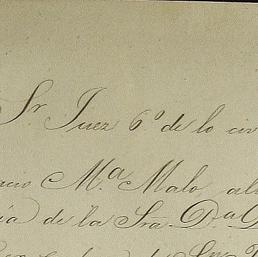 Sr. Juez 6º de lo civ
acio Mª Malo, al
ía de la Sra. Dª